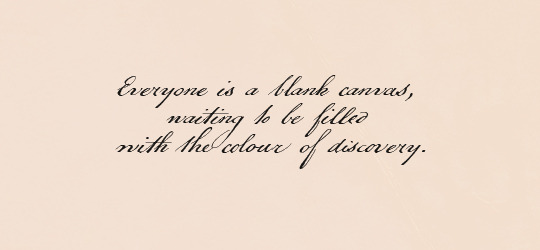 Everyone is a blank canvas,
waiting to be filled
with the colour of discovery.